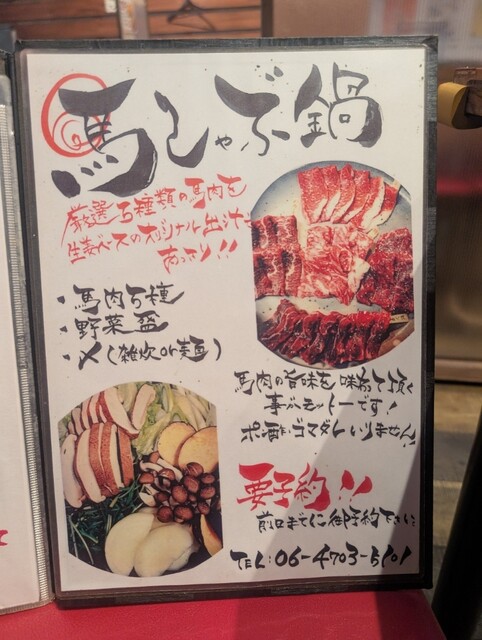 馬しゃぶ鍋
厳選5種類の馬肉を
生姜ベースのオリジナル出汁で
あっさり!!
・馬肉5種
・野菜盛
・〆(雑炊or麺)
馬肉の旨味を味わって頂く
事がモットーです!
ポン酢・ゴマダレいりません!!
要予約!!
前日までに御予約下さい
TEL:06-4703-5101